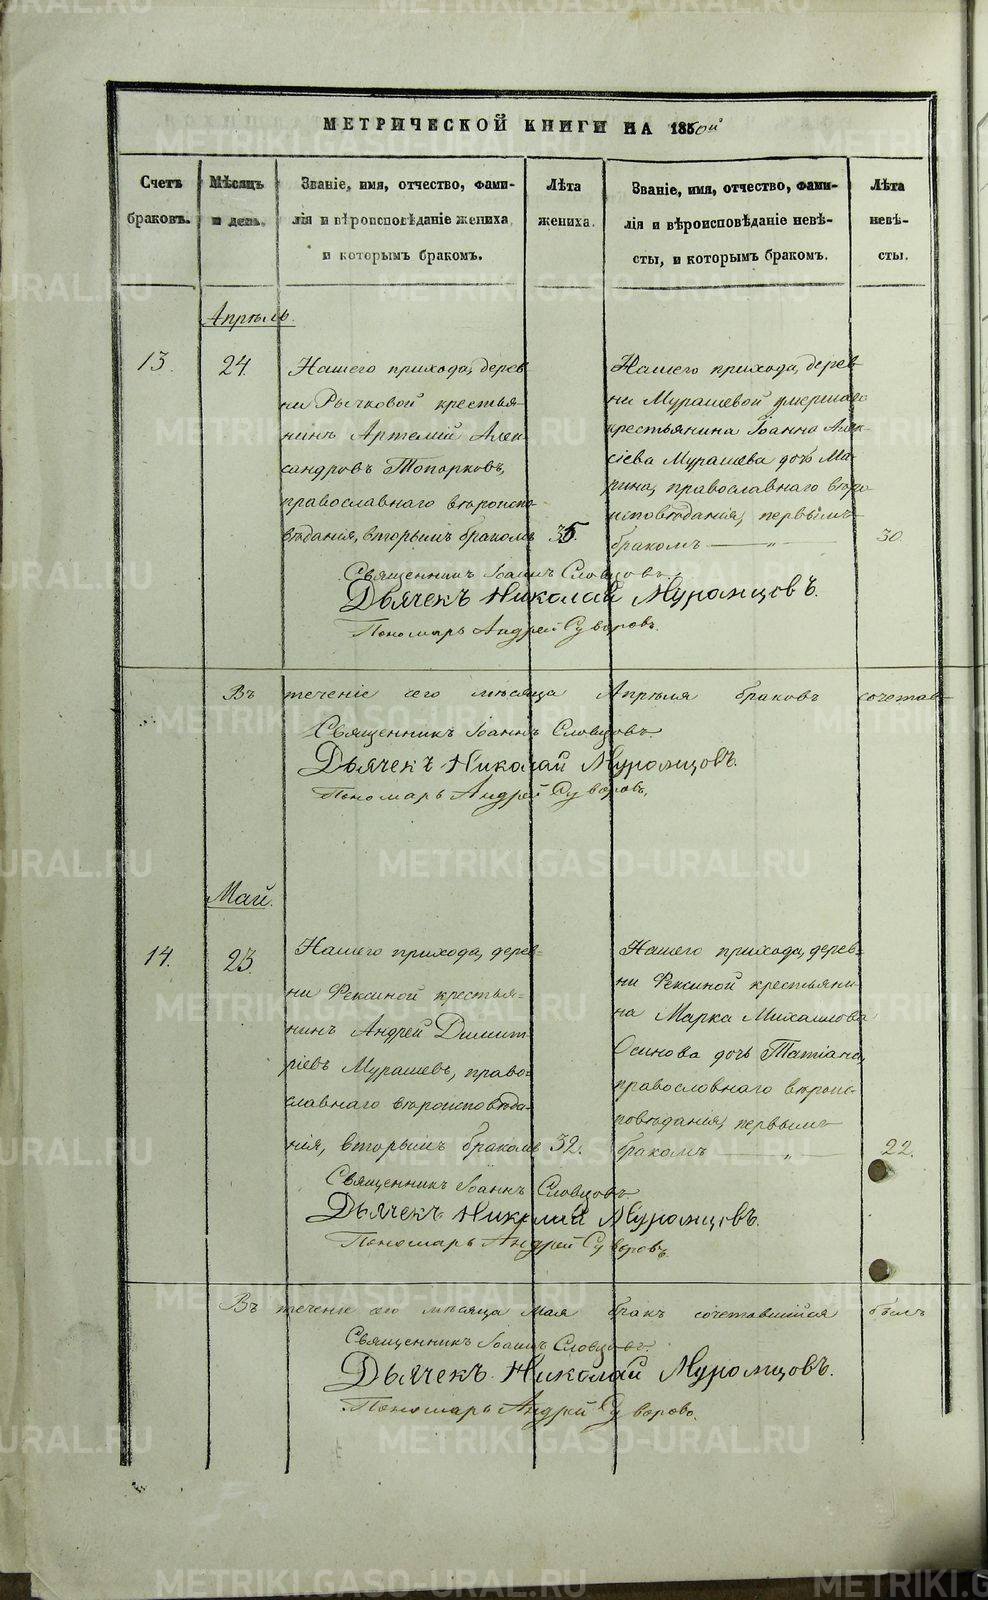 МЕТРИЧЕСКОЙ КНИГИ НА 1850й
Счетъ
браковъ.
Мѣсяцъ
и день.
Званіе, имя, отчество, фами-
лія и вѣроисповѣданіе жениха,
и которымъ бракомъ.
Лѣта
жениха.
Званіе, имя, отчество, фами-
лія и вѣроисповѣданіе невѣ-
сты, и которымъ бракомъ.
Лѣта
невѣ-
сты.
Апрѣль.
13.
24.
Нашего прихода, дерев-
ни Рычковой крестья-
нинъ Артемій Алек-
сандровъ Топорковъ,
православнаго вѣроиспо-
вѣданія, вторымъ бракомъ
35.
Нашего прихода, дерев-
ни Мурашевой умершаго
крестьянина Іоанна Алек-
сіева Мурашева дочь Ма-
рина, православнаго вѣро-
исповѣданія, первымъ
бракомъ — „ —
30.
Священникъ Іоаннъ Словцовъ.
Дьячекъ Николай Муромцовъ.
Пономарь Андрей Суворовъ.
Въ теченіе сего мѣсяца Апрѣля браковъ сочетав-
Священникъ Іоаннъ Словцовъ.
Дьячекъ Николай Муромцовъ.
Пономарь Андрей Суворовъ.
Май.
14.
23.
Нашего прихода, дерев-
ни Фексиной крестья-
нинъ Андрей Димит-
ріевъ Мурашевъ, право-
славнаго вѣроисповѣда-
нія, вторымъ бракомъ
32.
Нашего прихода, дерев-
ни Фексиной крестьяни-
на Марка Михаилова
Осинова дочь Татіана,
православнаго вѣроис-
повѣданія, первымъ
бракомъ — „ —
22.
Священникъ Іоаннъ Словцовъ.
Дьячекъ Николай Муромцовъ.
Пономарь Андрей Суворовъ.
Въ теченіе сего мѣсяца Мая бракъ сочетавшійся былъ
Священникъ Іоаннъ Словцовъ.
Дьячекъ Николай Муромцовъ.
Пономарь Андрей Суворовъ.
METRIKI.GASO-URAL.RU